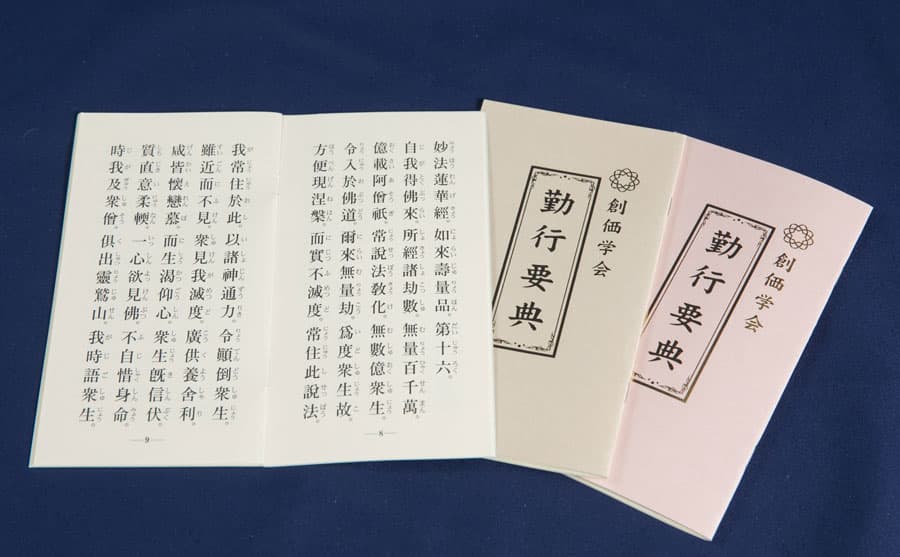 妙法蓮華經。如來壽量品。第十六。
自我得佛來。所經諸劫數。無量百千萬。
億載阿僧祇。常說法教化。無數億衆生。
令入於佛道。爾來無量劫。爲度衆生故。
方便現涅槃。而實不滅度。常住此說法。
8
我常住於此。以諸神通力。令顚倒衆生。
雖近而不見。衆見我滅度。廣供養舍利。
咸皆懷戀慕。而生渴仰心。衆生旣信伏。
質直意柔輭。一心欲見佛。不自惜身命。
時我及衆僧。俱出靈鷲山。我時語衆生。
9
創価学会
勤行要典
創価学会
勤行要典